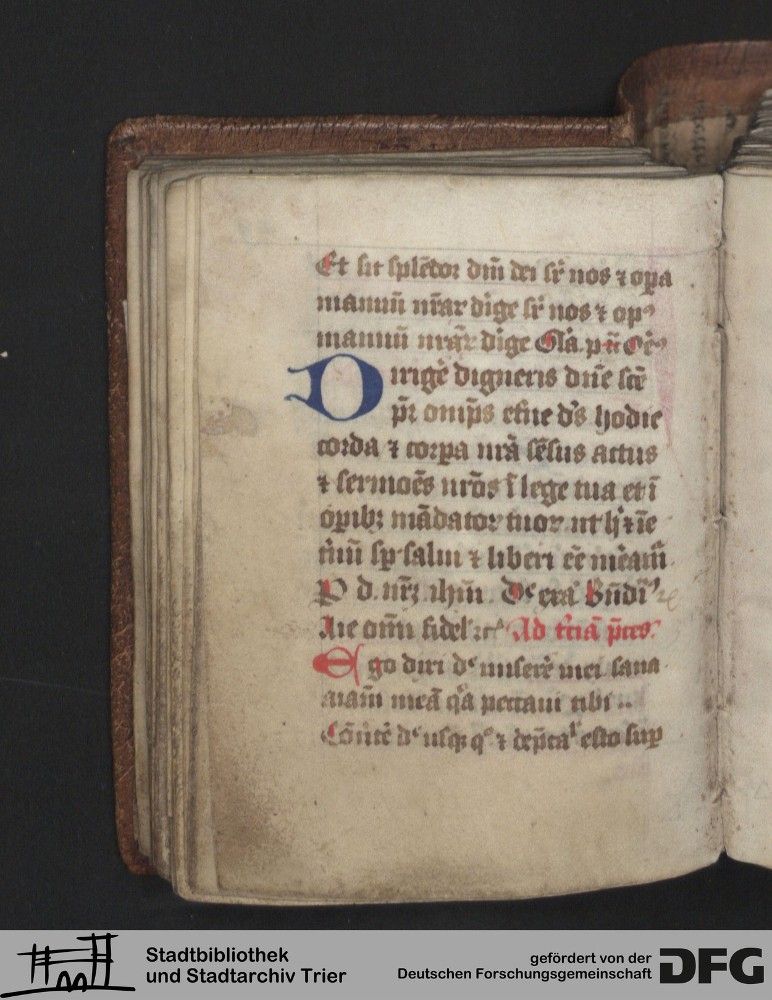 Et sit splēdor dn̄i dei sr̄ nos ⁊ op̄a
manuū nr̄ar dige sr̄ nos ⁊ opꝰ
manuū nr̄ar dige Gl̄a. pr̄i
Dirigē digneris dn̄e scē
pr̄ omīps etīne dꝰs hodie
corda ⁊ corpa nr̄a sēsus actus
⁊ sermoēs nr̄os ī lege tua et ī
opibꝫ mādator tuor ut h̄ ⁊ ī
salui ⁊ liberi eē meām̄
P d. nr̄ꝫ ihm̄.
Aīe om̄ fidel Ad t̄ciā p̄ces.
Ego dixi dꝰ miserē mei sana
aiam̄ meā q̄a peccaui tibi ..
Cōūtē dꝰ usqꝫ qꝰ ⁊ dep̄caꝰ esto sup
Stadtbibliothek
und Stadtarchiv Trier
gefördert von der
Deutschen Forschungsgemeinschaft
DFG